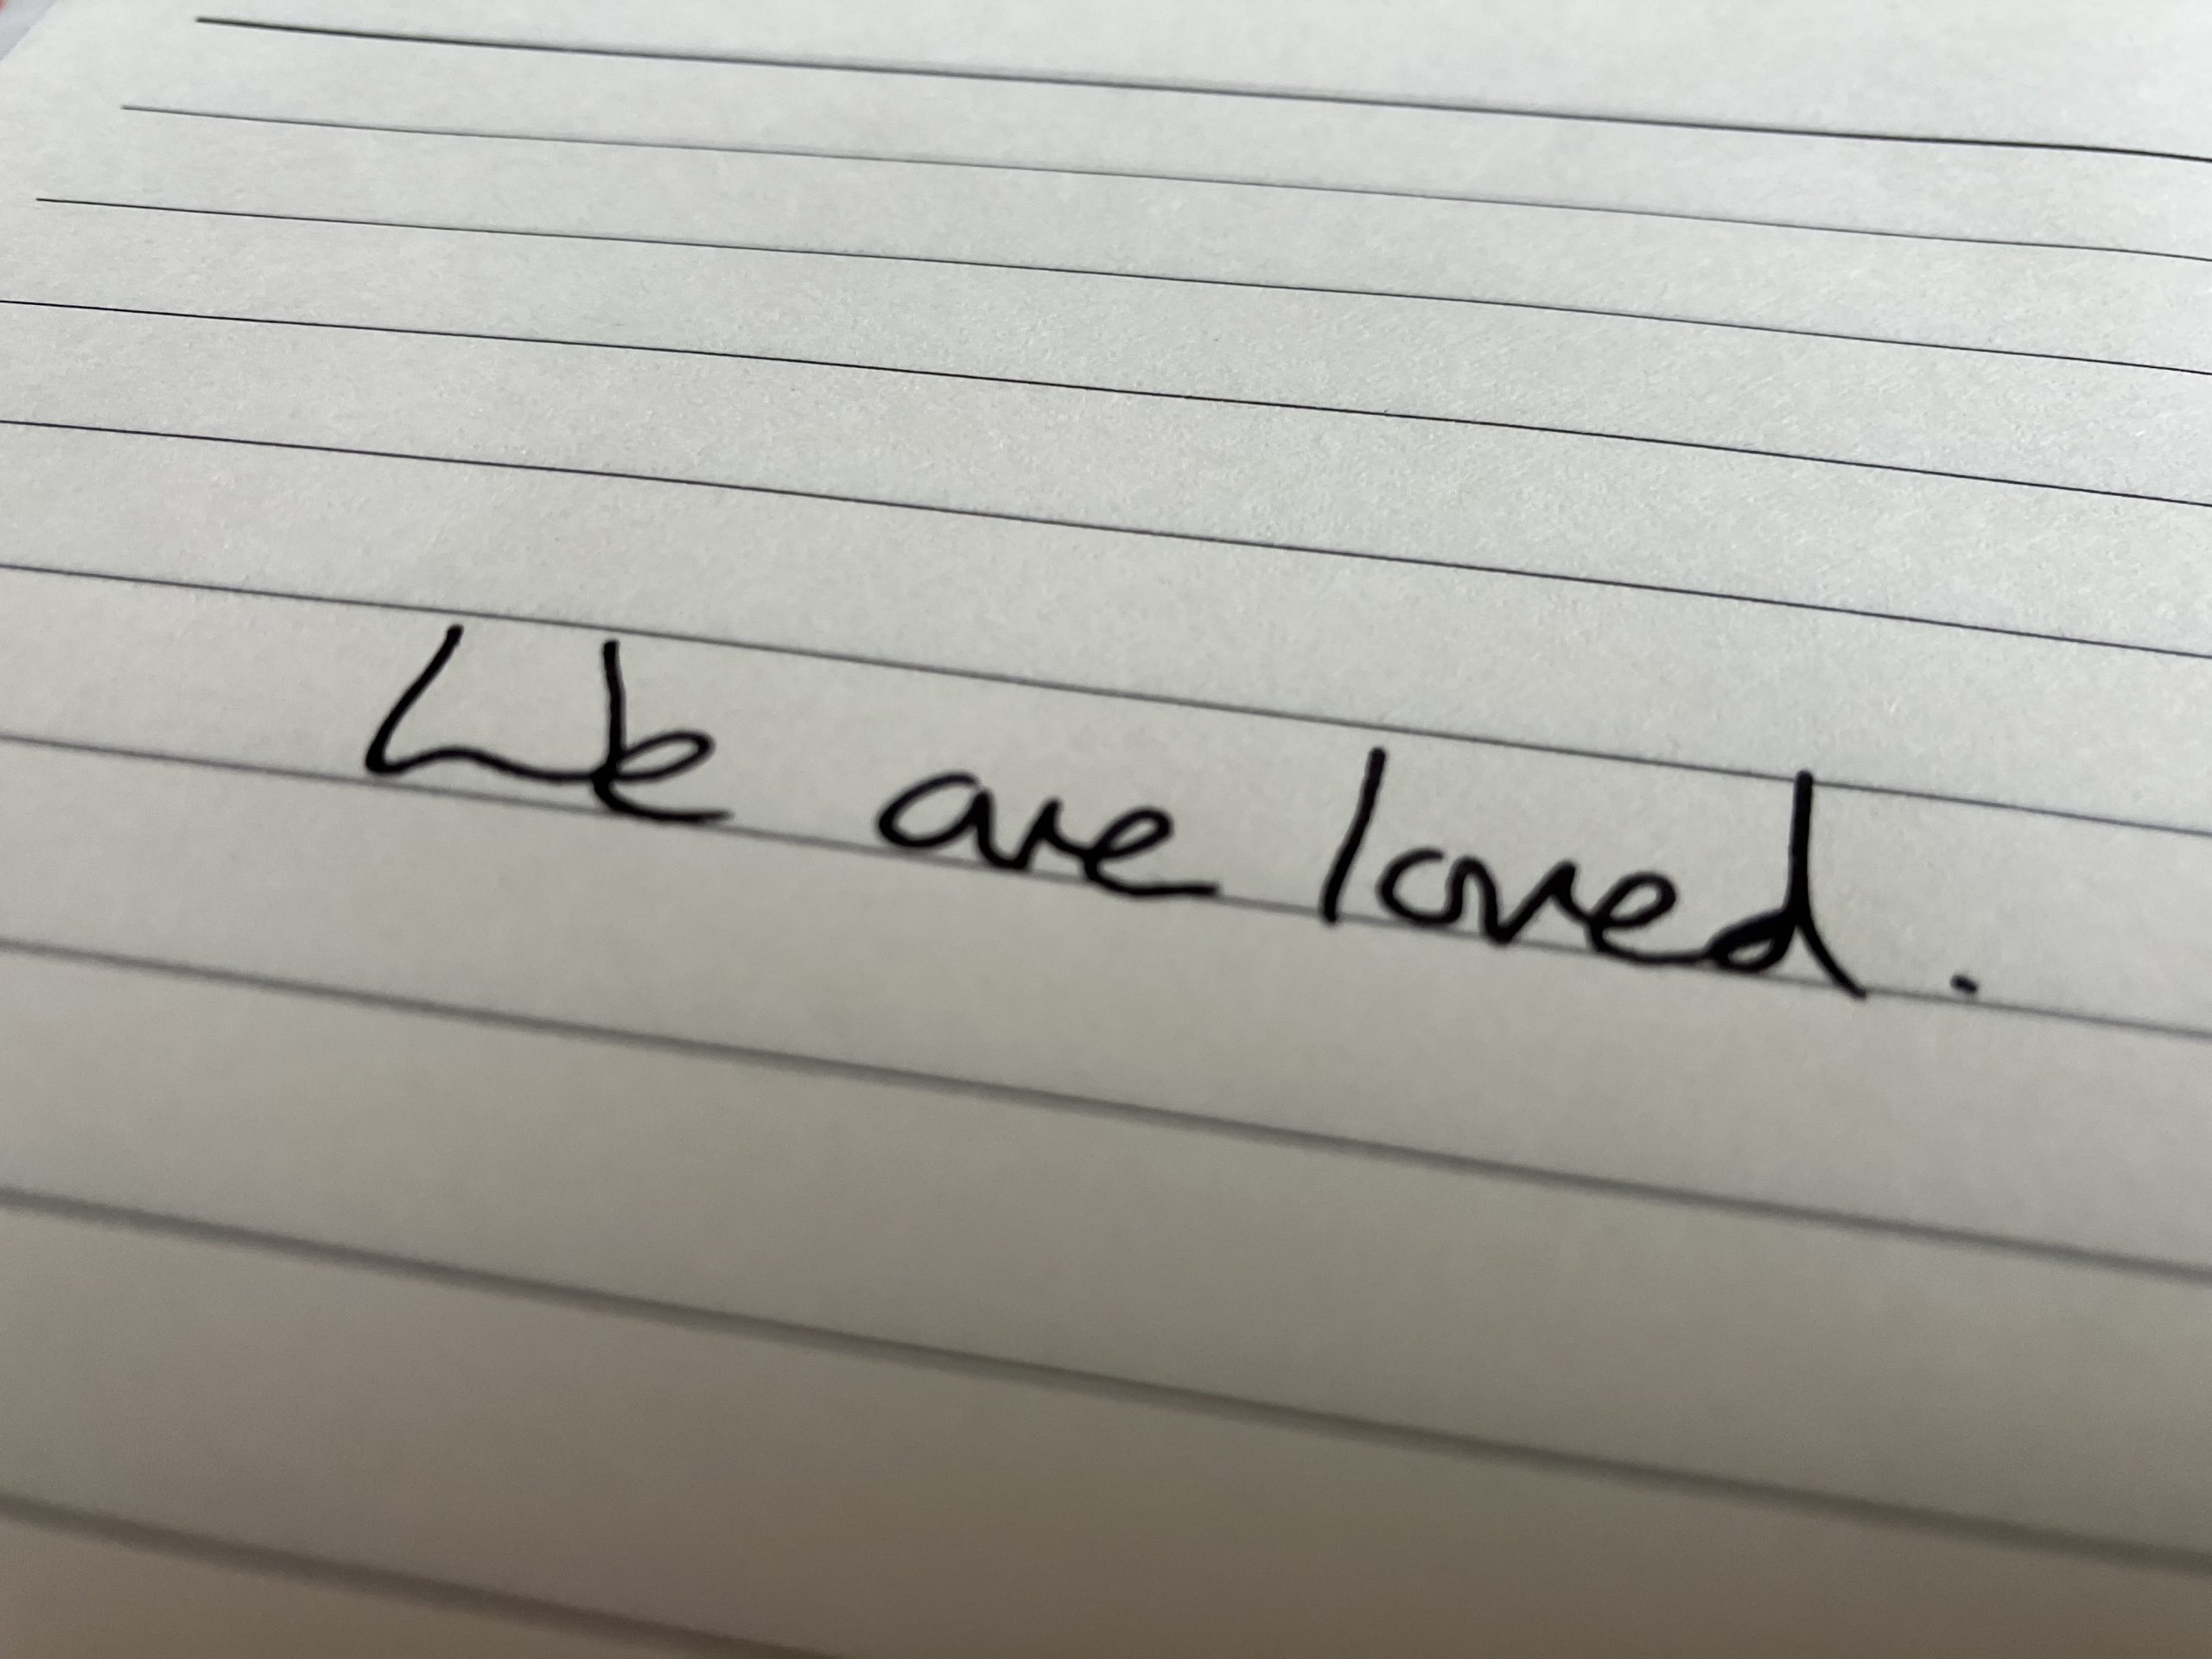 We are loved.